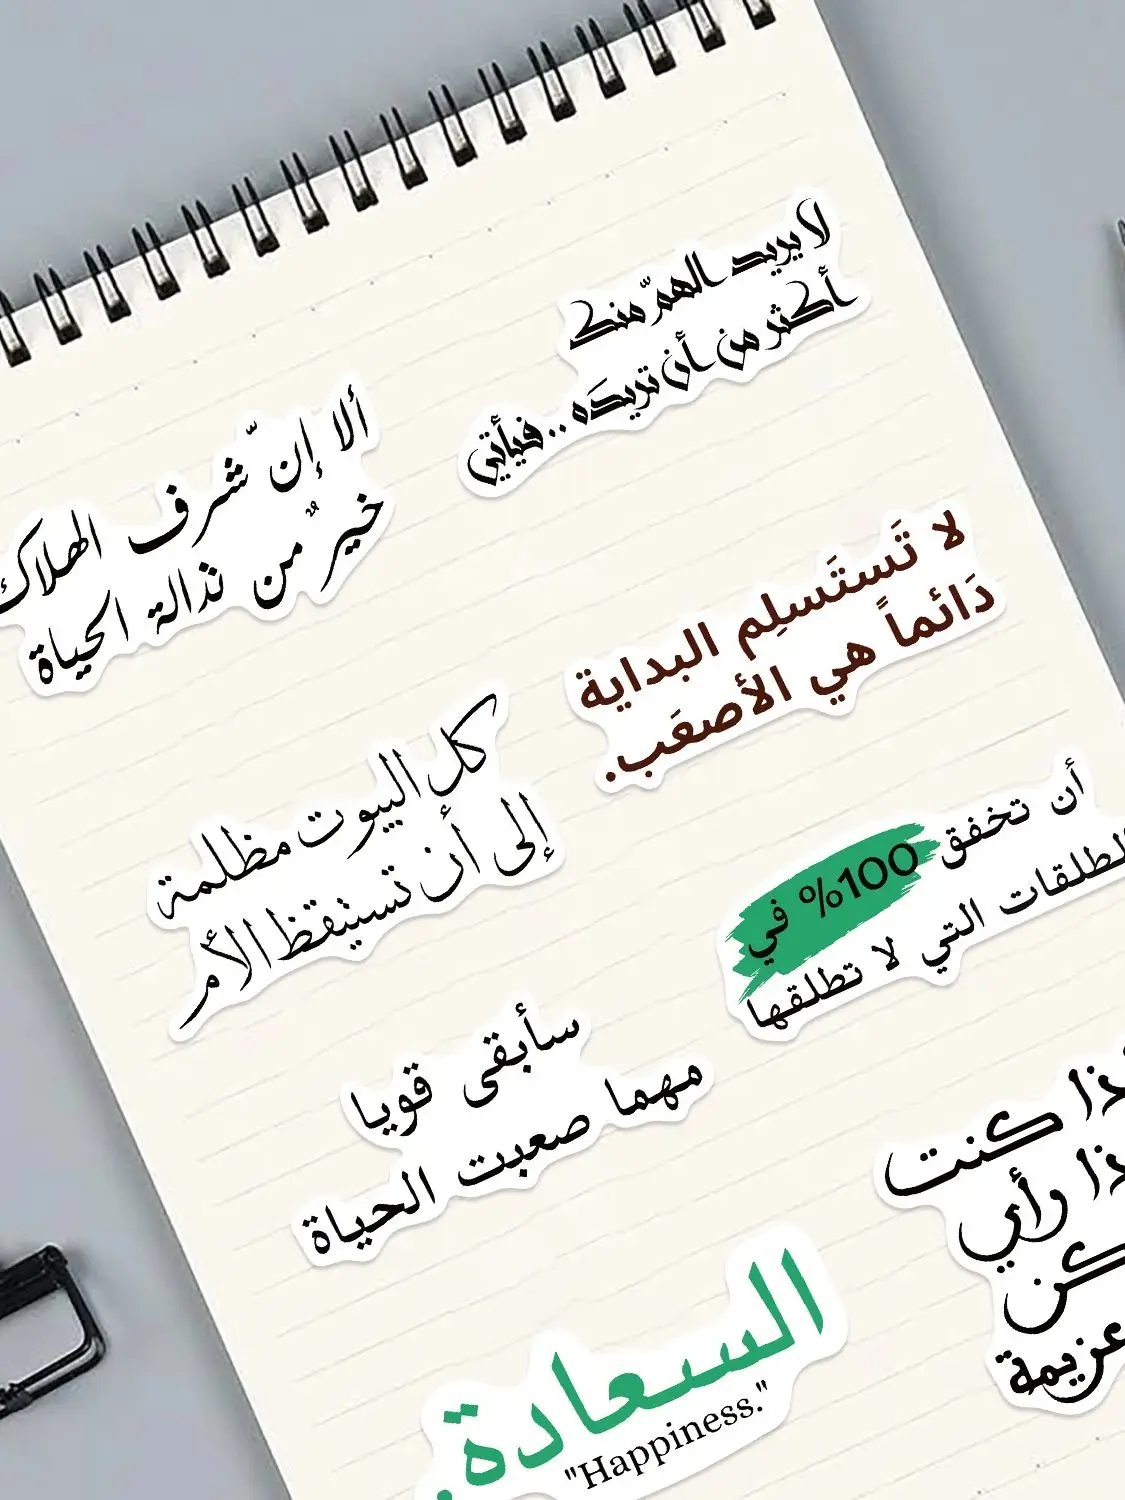 لا يريد الهمّ منك
أكثر من أن تريدَه .. فيأتي
ألا إن شرف الهلاك
خيرٌ من نذالة الحياة
لا تَستَسلِم البداية
دَائماً هي الأصعَب.
كل البيوت مظلمة
إلى أن تستيقظ الأم
أن تخفق
100% في
الطلقات التي لا تطلقها
سأبقى قويا
مهما صعبت الحياة
كنت
رأي
عزيمة
السعادة.
"Happiness."